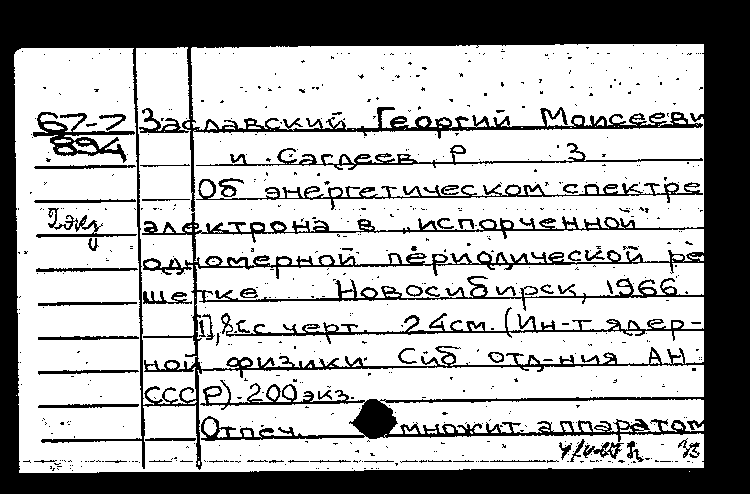 67-7 Заславский, Георгий Моисееви
894
и Сагдеев, Р З.
Об энергетическом спектре
2 экз электрона в "испорченной"
одномерной периодической ре
шетке. Новосибирск, 1966.
[1], 8 с. с черт. 24 см. (Ин-т ядер-
ной физики Сиб отд-ния АН
СССР). 200 экз.
Отпеч. множит. аппаратом